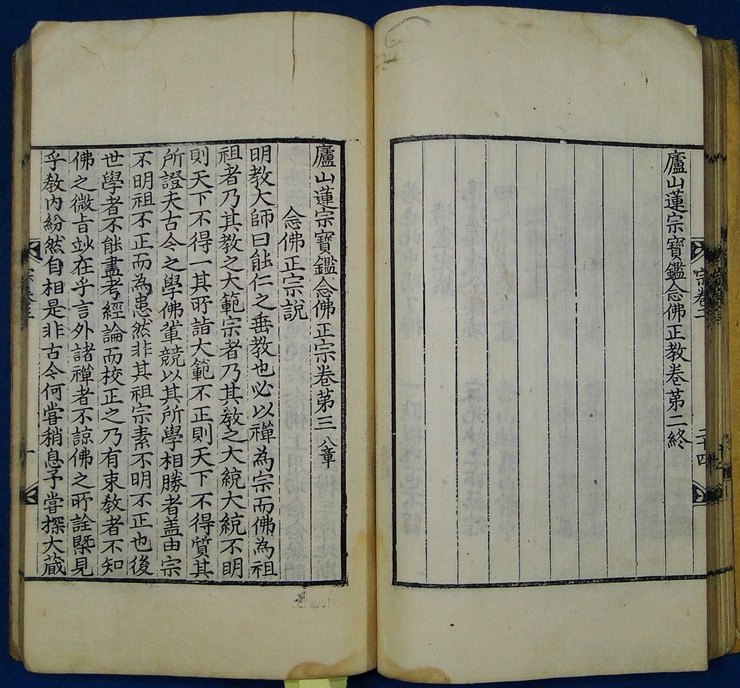 廬山蓮宗寶鑑念佛正教卷第二終
宗卷二
二十四
廬山蓮宗寶鑑念佛正宗卷第三 八章
念佛正宗說
明教大師曰能仁之垂教也必以禪為宗而佛為祖
祖者乃其教之大範宗者乃其教之大統大統不明
則天下不得一其所詣大範不正則天下不得質其
所證夫古今之學佛輩競以其所學相勝者盖由宗
不明祖不正而為患然非其祖宗素不明不正也後
世學者不能盡考經論而校正之乃有束教者不知
佛之微旨玅在乎言外諸禪者不諒佛之所詮槩見
乎教內紛然自相是非古今何嘗稍息予嘗探大藏
宗卷三
一